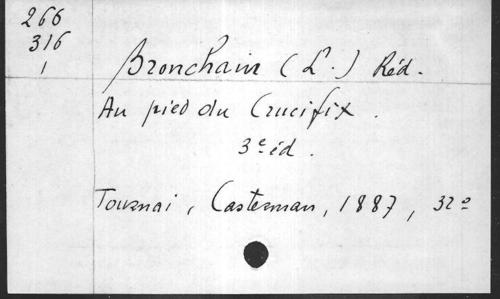 266
316
1
Bronchain (L.) Réd.
Au pied du Crucifix.
3e éd.
Tournai, Casterman, 1887, 32º